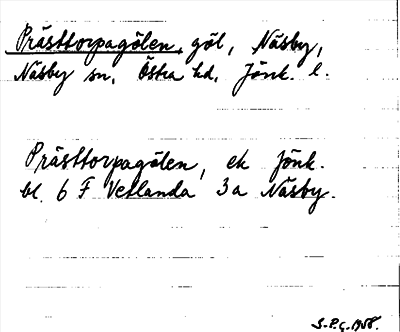 Prästtorpagölen, göl, Näsby,
Näsby sn, Östra hd, Jönk. l.
Prästtorpagölen, ek Jönk.
bl. 6 F Vetlanda 3a Näsby.
S.P.G. 1958.